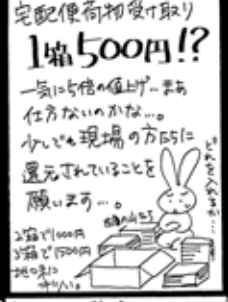 宅配便荷物受け取り
1箱500円!?
一気に5倍の値上げ…まあ
仕方ないのかな…。
少しでも現場の方々に
還元されていることを
願います…。
どれを入れるか…
2箱で1000円
3箱で1500円
地味に